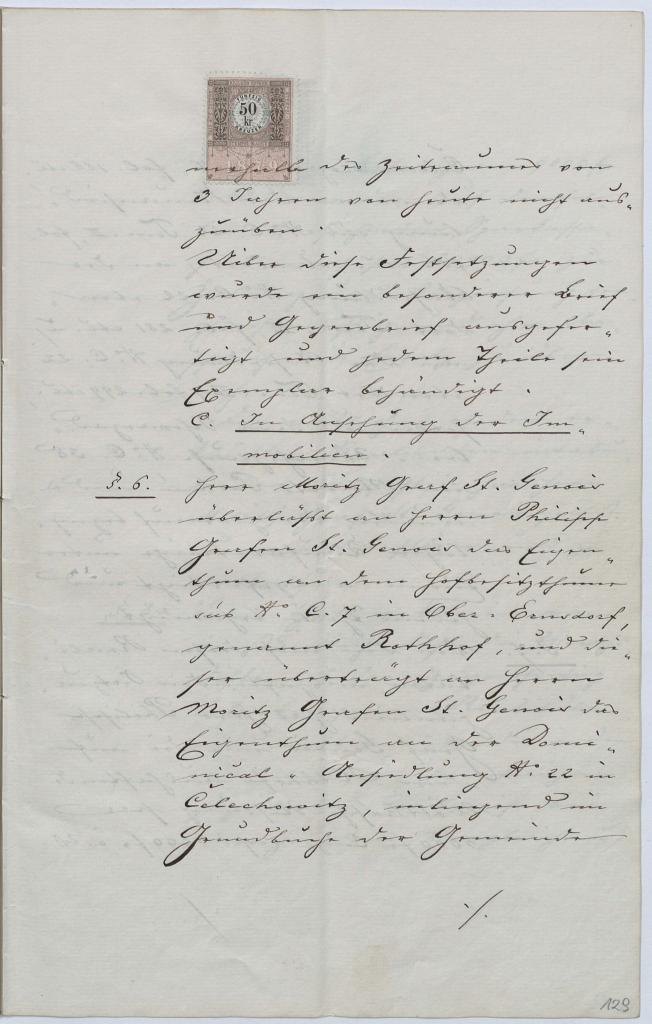 FÜNFZIG
50
kr
KREUZER
nerhalb des Zeitraumes von
3 Jahren von heute nicht aus„
zuüben.
Ueber diese Festsetzungen
wurde ein besonderer Brief
und Gegenbrief ausgefer„
tigt und jedem Theile sein
Exemplar behändigt.
C. In Ansehung der Im„
mobilien.
§. 6. Herr Moritz Graf St. Genois
überläßt an Herrn Philipp
Grafen St. Genois das Eigen„
thum an dem Hofbesitzthume
sub No. C. 7 in Ober-Ernsdorf,
genannt Rothhof, und die„
ser überträgt an Herrn
Moritz Grafen St. Genois das
Eigenthum an der Domi„
nical-Ansiedlung No. 22 in
Čelechowitz, inliegend im
Grundbuche der Gemeinde
./.
128